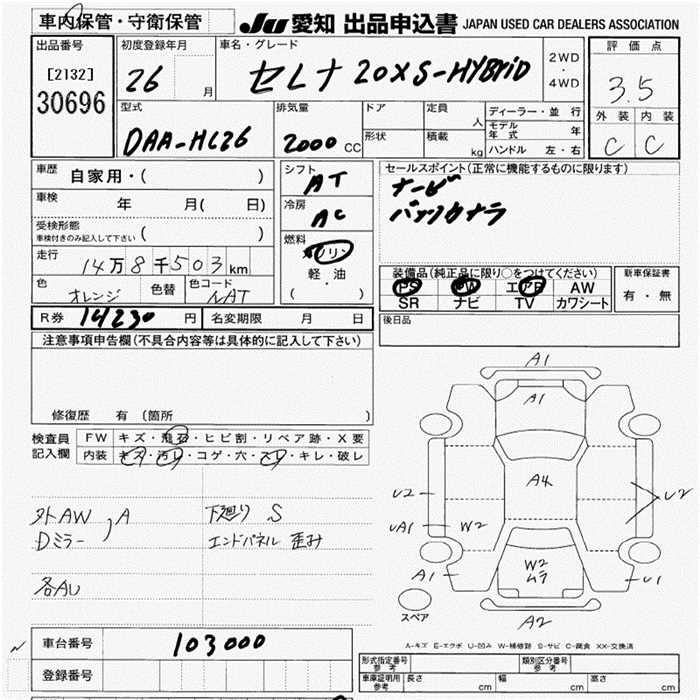 車内保管・守衛保管
JU 愛知 出品申込書 JAPAN USED CAR DEALERS ASSOCIATION
出品番号
[2132]
30696
初度登録年月
26 月
車名・グレード
セレナ 20XS-HYBRID
2WD
・
4WD
評価点
3.5
外装 内装
C C
型式
DAA-HC26
排気量
2000 CC
ドア
形状
定員 人
積載 kg
ディーラー・並行
モデル年式 年
ハンドル 左・右
車歴 自家用・( )
車検 年 月( 日)
受検形態
車検付きのみ記入して下さい ( )
走行 14万8千503km
色 オレンジ 色替 色コード NAT
シフト
AT
冷房
AC
燃料
ガソリン
軽・油
( )
セールスポイント(正常に機能するものに限ります)
ナービ
バックカメラ
装備品(純正品に限り○をつけてください)
PS PW エアB AW
SR ナビ TV カワシート
新車保証書
有・無
R券 14230 円 名変期限 月 日
後日品
注意事項申告欄(不具合内容等は具体的に記入して下さい)
修復歴 有 (箇所 )
検査員
記入欄
FW キズ・飛石・ヒビ割・リペア跡・X要
内装 キズ・汚レ・コゲ・穴・スレ・キレ・破レ
外AW, A
Dミラー
各AU
下廻り S
エンドパネル 歪み
A1
A1
A4
U2
U2
UA1
W2
A1
W2
ムラ
U1
A2
スペア
A-キズ E-エクボ U-凹み W-補修跡 S-サビ C-腐食 XX-交換済
車台番号 103000
登録番号
形式指定番号
参考
類別区分番号
参考
車庫証明用
参考
長さ cm 幅 cm 高さ cm